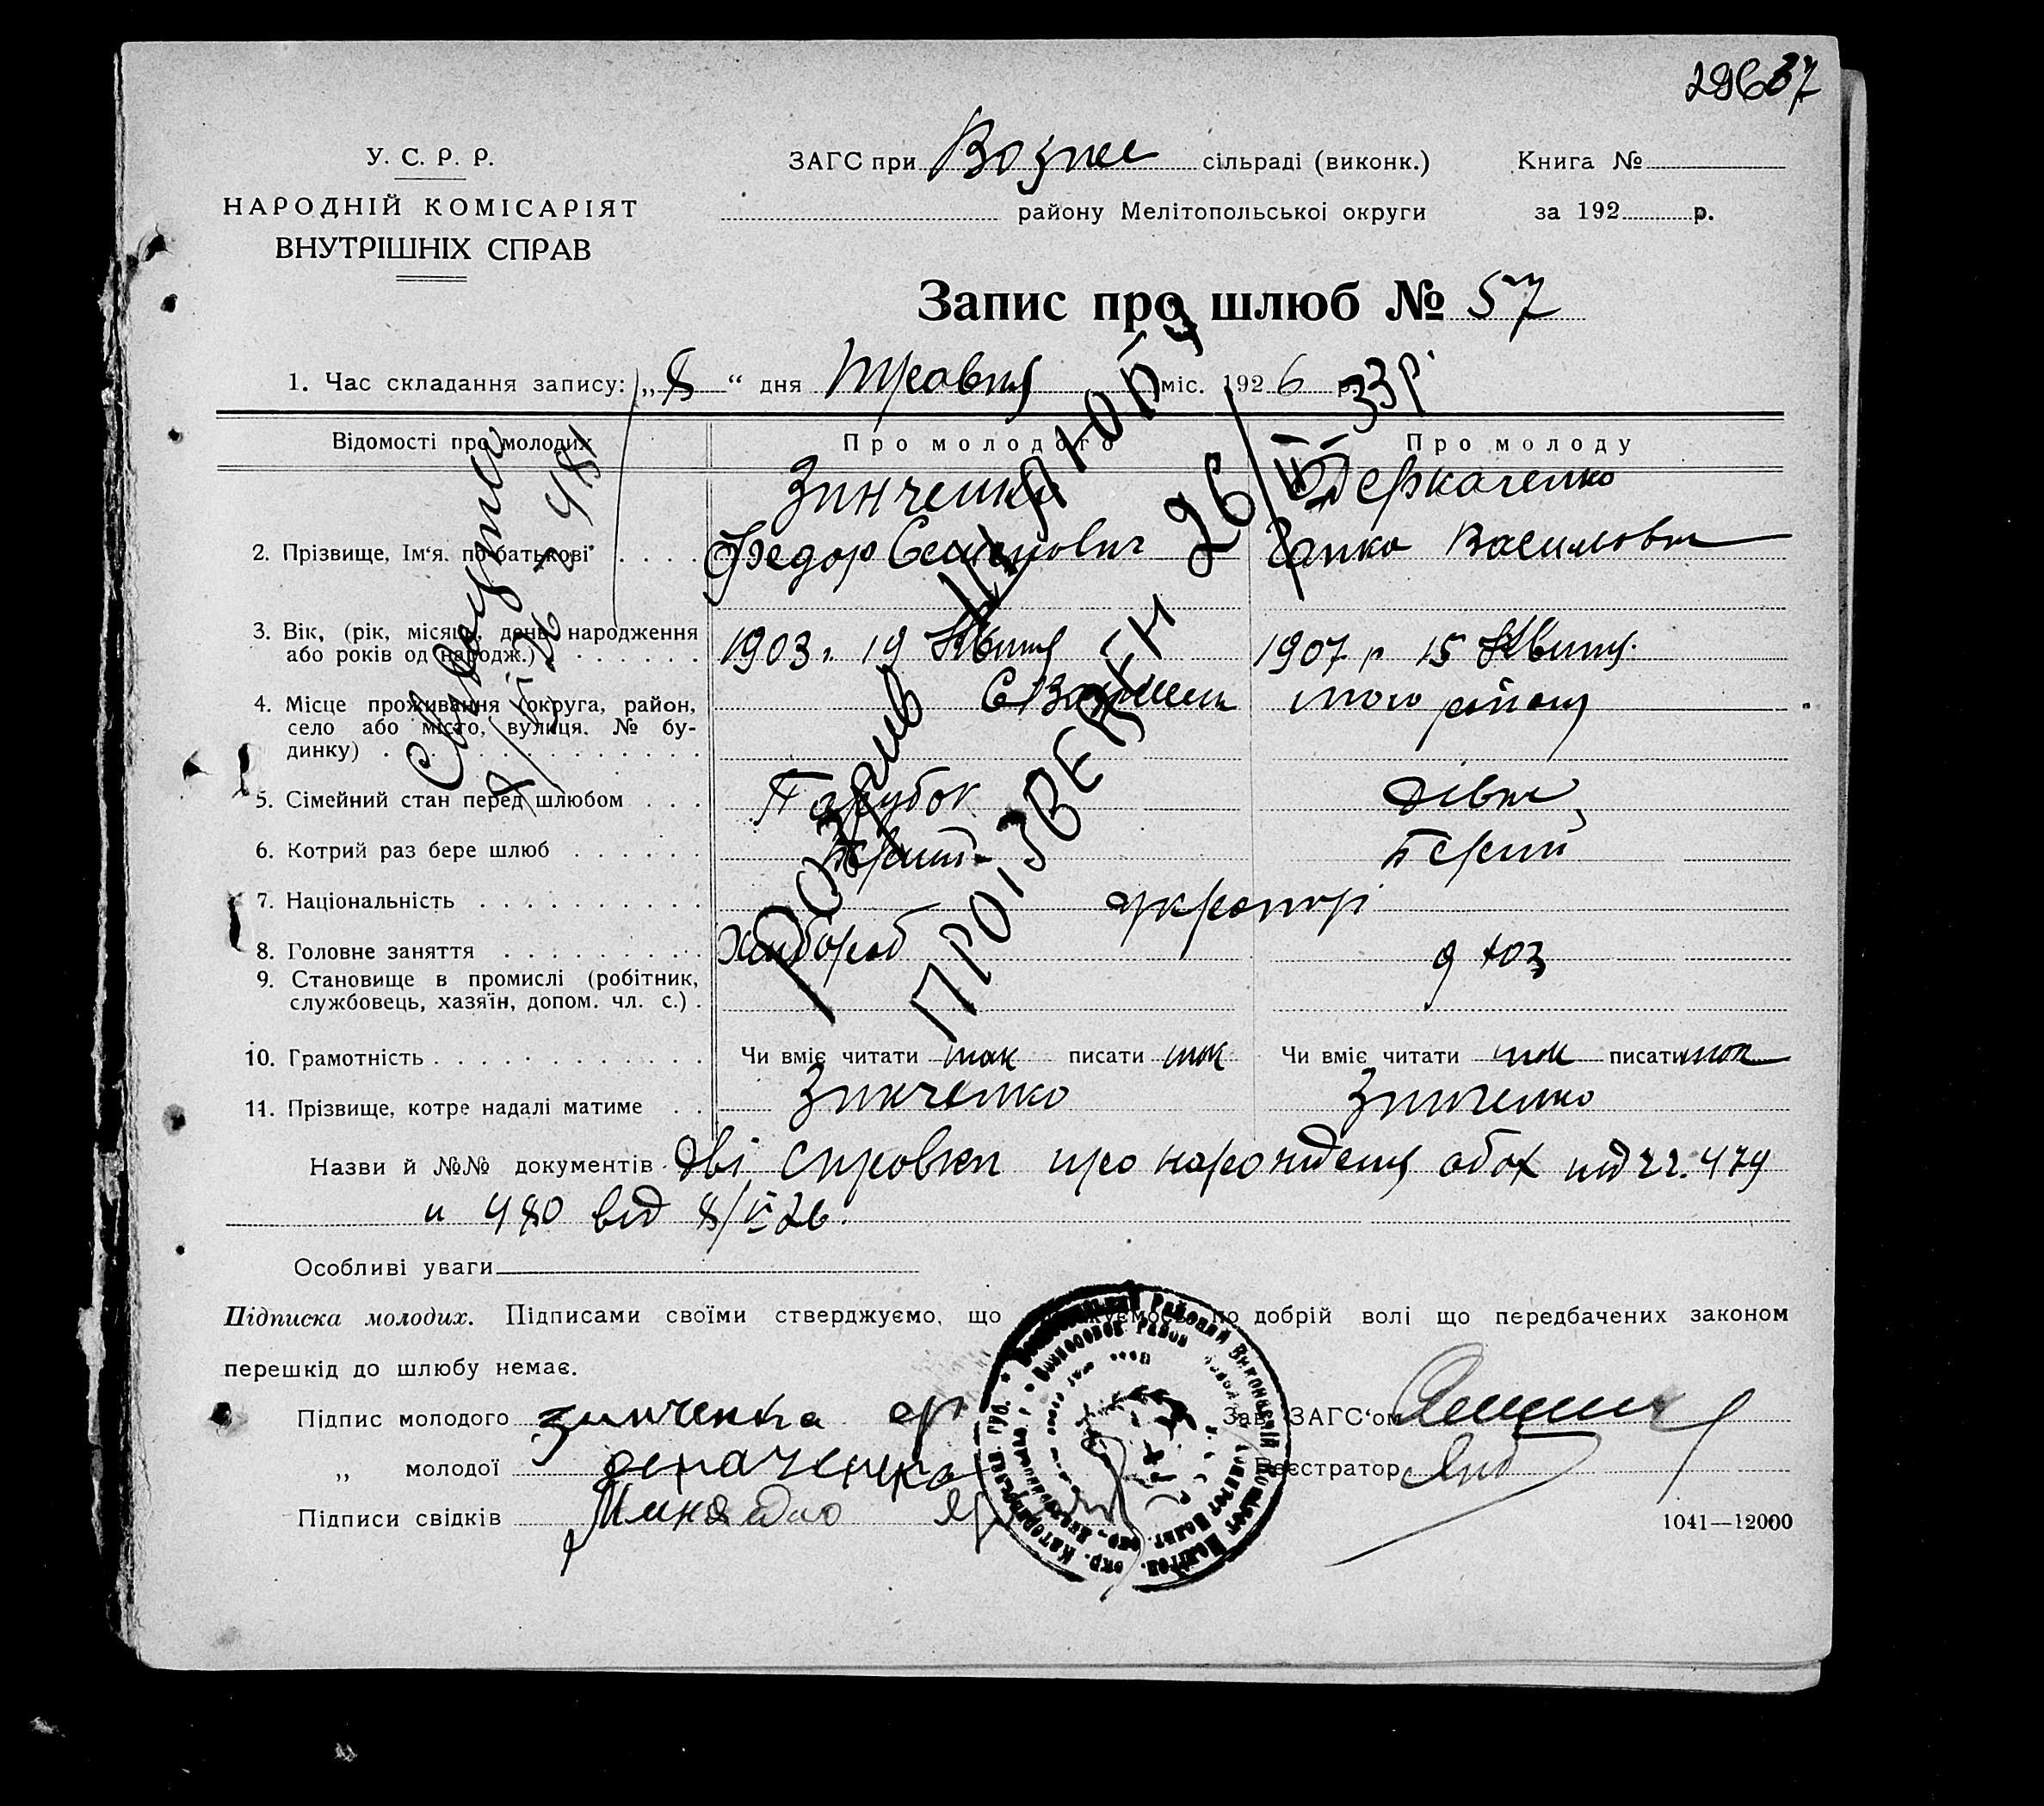 У. С. Р. Р.
НАРОДНІЙ КОМІСАРІЯТ
ВНУТРІШНІХ СПРАВ
ЗАГС при Вознес сільраді (виконк.) Книга №
району Мелітопольської округи за 192 р.
Запис про шлюб № 57
1. Час складання запису: „8“ дня Травня міс. 1926 р.
Відомості про молодих Про молодого Про молоду
Зинченко Деркаченко
2. Прізвище, Ім‘я. по-батькові Федор Семенович Ганка Василовна
3. Вік, (рік, місяць, день народження
або років од народж.) 1903 р. 19 Квітня 1907 р 15 Квітня
4. Місце проживання (округа, район,
село або місто, вулиця. № бу-
динку) того району
5. Сімейний стан перед шлюбом Парубок Дівка
6. Котрий раз бере шлюб Перший Перший
7. Національність українці
8. Головне заняття Хлібороб д хоз
9. Становище в промислі (робітник,
службовець, хазяїн, допом. чл. с.)
10. Грамотність Чи вміє читати так писати так Чи вміє читати так писати так
11. Прізвище, котре надалі матиме Зинченко Зинченко
Назви й №№ документів Дві справки про народження обох під 479
и 480 від 8/V 26.
Особливі уваги
Підписка молодих. Підписами своїми стверджуємо, що по добрій волі що передбачених законом
перешкід до шлюбу немає.
Підпис молодого Зинченка
„ молодої деркаченко
Підписи свідків
Зав. ЗАГС‘ом
Реєстратор
1041—12000
8/V 26 481
РОЗРИВ ШЛЮБУ
ПРОІЗВЕДЕН 26/ 33р.
Районний Виконавчий Комітет